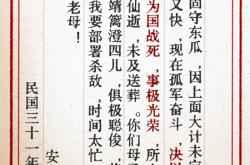 固守东瓜，因上面大计未
又快，现在孤军奋斗，决
为国战死，事极光荣，所
仙逝，未及送葬。你们母
靖篱澄四儿，俱极聪俊，
我要部署杀敌，时间太忙
老母！
安
民国三十一年